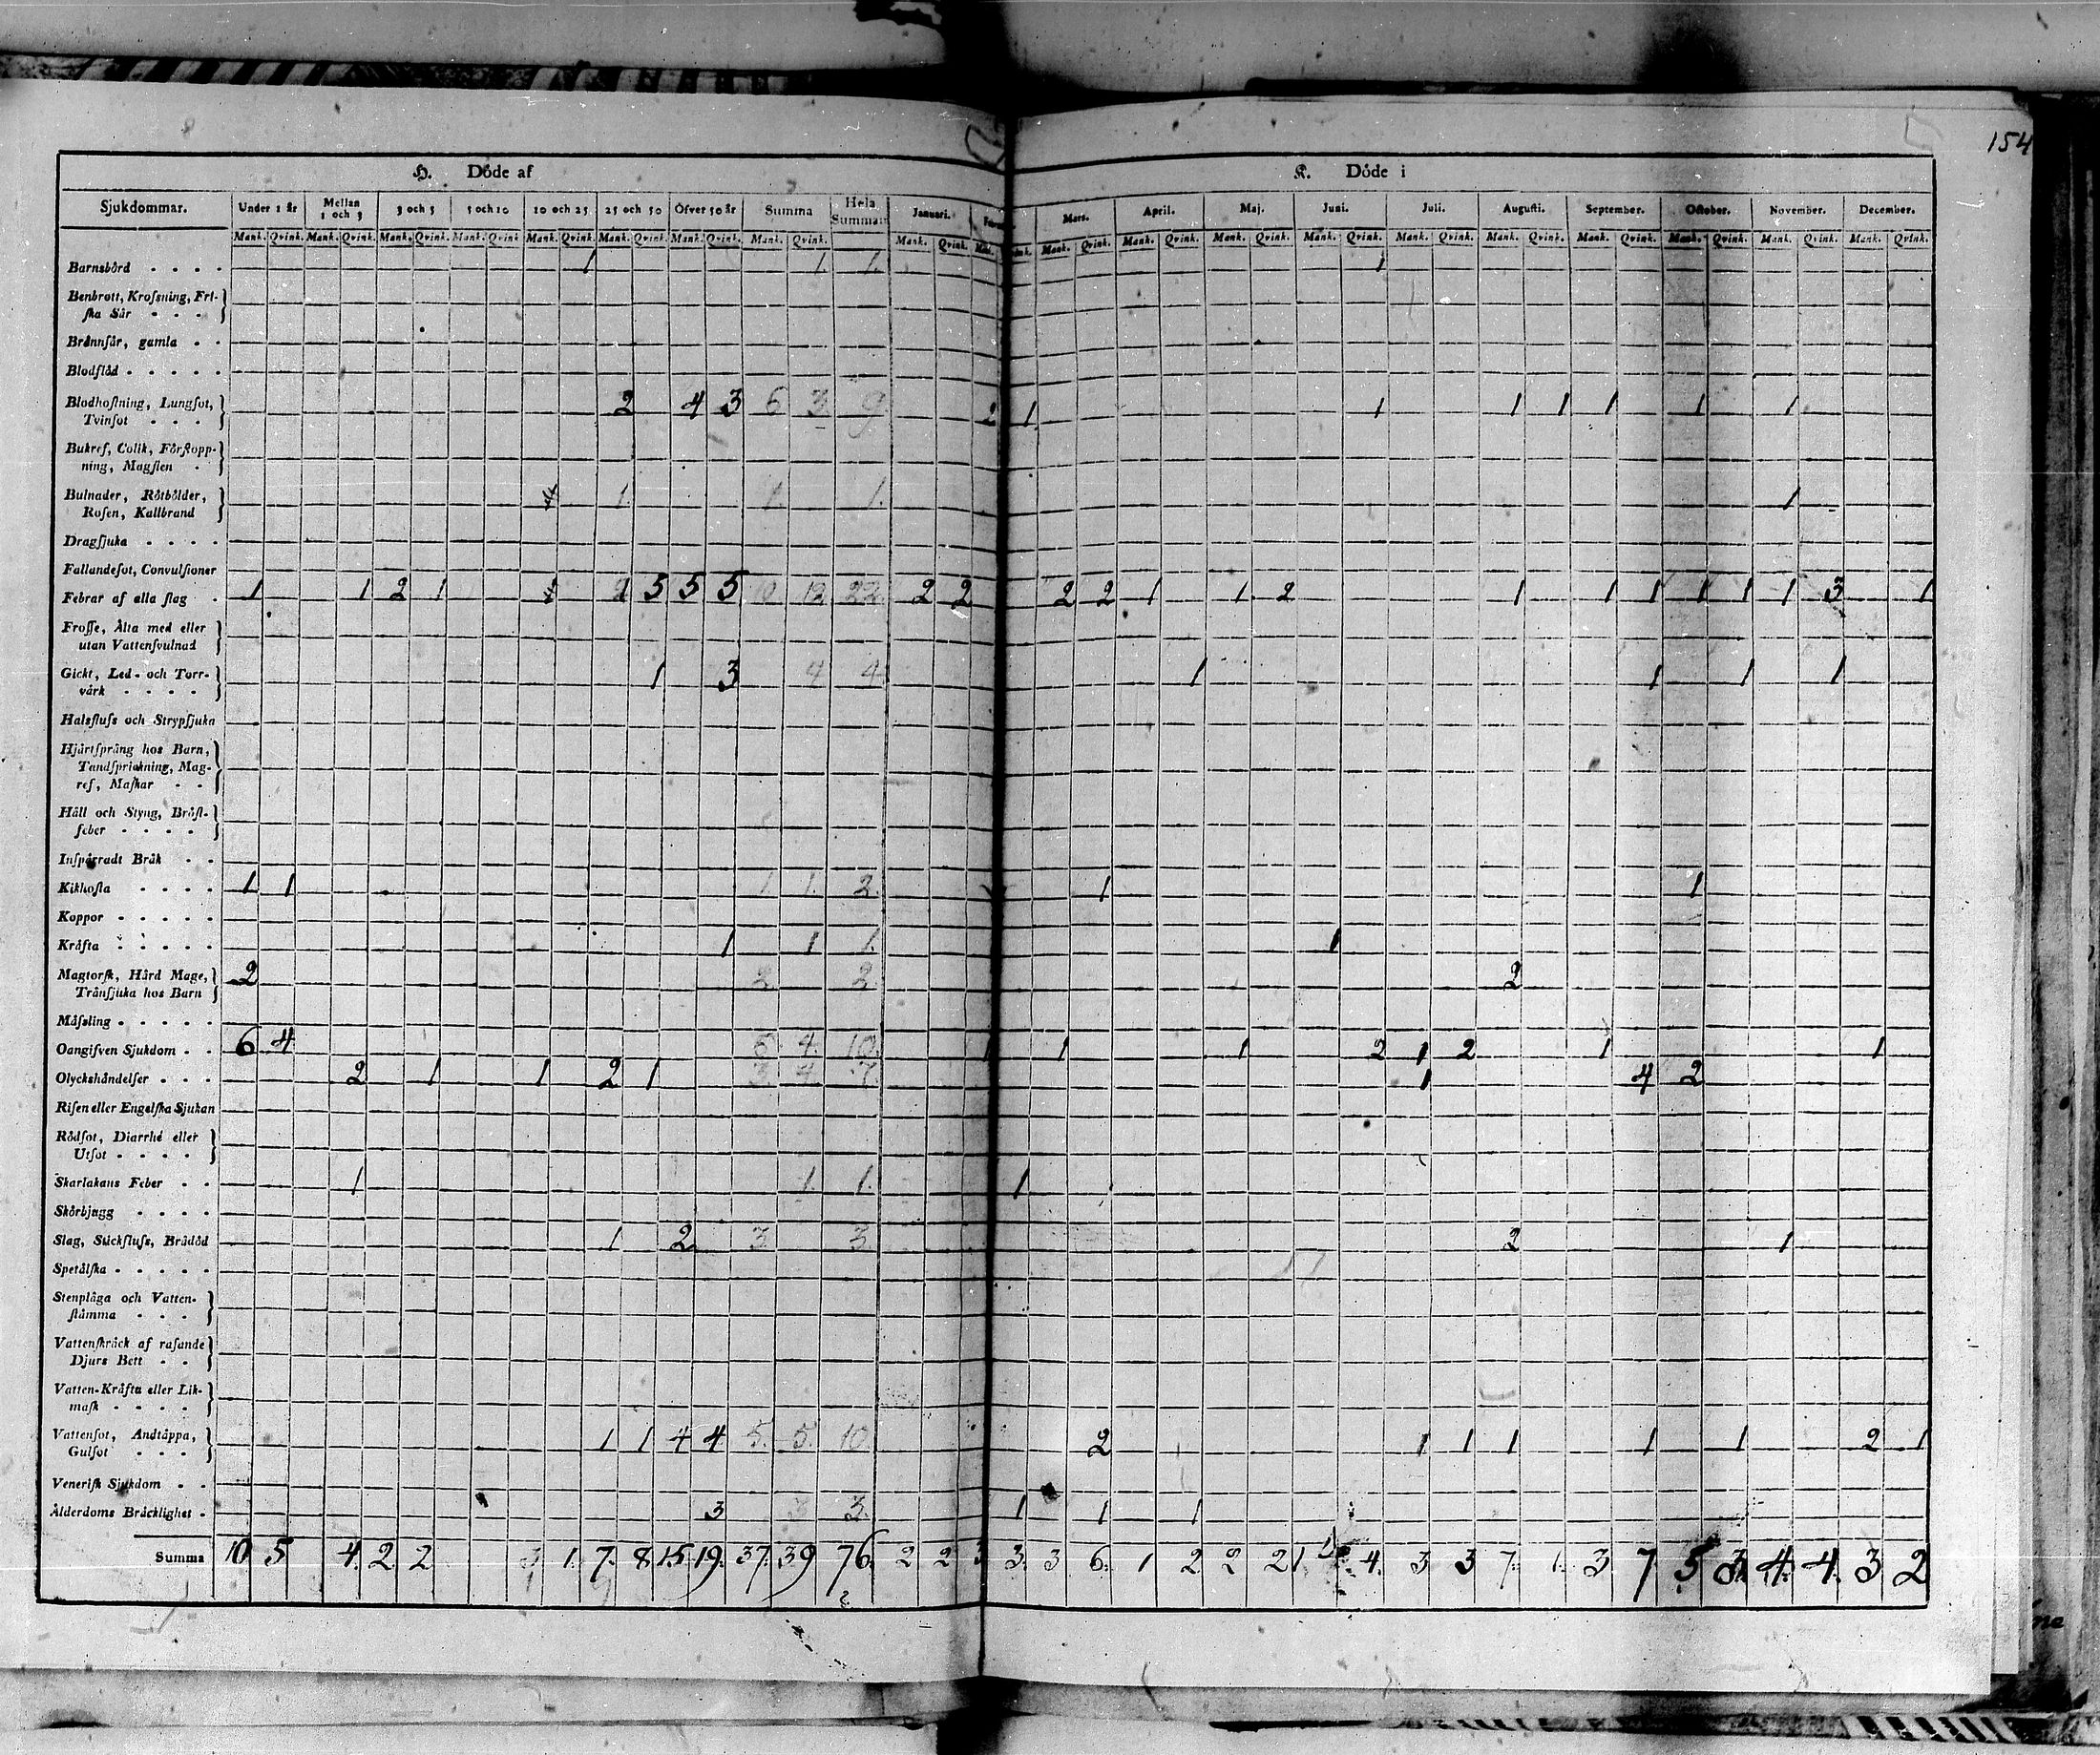 154
H. Döde af
K. Döde i
Sjukdommar. Under 1 år Mellan 1 och 3 3 och 5 5 och 10 10 och 25 25 och 50 Öfver 50 år Summa Hela Summan Januari. Mars. April. Maj. Juni. Juli. Augusti. September. October. November. December.
Mank. Qvink. Mank. Qvink. Mank. Qvink. Mank. Qvink. Mank. Qvink. Mank. Qvink. Mank. Qvink. Mank. Qvink. Mank. Qvink. Mank. Qvink. Mank. Qvink. Mank. Qvink. Mank. Qvink. Mank. Qvink. Mank. Qvink. Mank. Qvink. Mank. Qvink. Mank. Qvink. Mank. Qvink.
Barnsbörd 1 1. 1. 1
Benbrott, Krosſning, Fri-
ſka Sår
Brännſår, gamla
Blodflöd
Blodhoſtning, Lungſot,
Tvinſot 2 4 3 6 3 9 2 1 1 1 1 1 1 1
Bukref, Colik, Förſtopp-
ning, Magſten
Bulnader, Rötbölder,
Roſen, Kallbrand 1 1. 1. 1
Dragſjuka
Fallandeſot, Convulſioner
Febrar af alla ſlag 1 1 2 1 2 5 5 5 10 12 22 2 2 2 2 1 1 2 1 1 1 1 1 1 3 1
Frosſe, Älta med eller
utan Vattenſvulnad
Gickt, Led- och Torr-
värk 1 3 4 4 1 1 1 1
Halsfluſs och Strypſjuka
Hjärtſprång hos Barn,
Tandſprickning, Mag-
ref, Maſkar
Håll och Styng, Bröſt-
feber
Inſpärradt Bråk
Kikhoſta 1 1 1 1. 2. 1 1
Koppor
Kräfta 1 1 1. 1
Magtorſk, Hård Mage,
Tränſjuka hos Barn 2 2 2. 2
Måſsling
Oangifven Sjukdom 6 4 6 4. 10. 1 1 1 2 1 2 1 1
Olyckshändelſer 2 1 1 2 1 3 4 7. 1 4 2
Riſen eller Engelſka Sjukan
Rödſot, Diarrhé eller
Utſot
Skarlakans Feber 1 1. 1. 1
Skörbjugg
Slag, Stickfluſs, Brådöd 1 2 3. 3. 2 1
Spetälſka
Stenplåga och Vatten-
ſtämma
Vattenſkräck af raſande
Djurs Bett
Vatten-Kräfta eller Lik-
maſk
Vattenſot, Andtäppa,
Gulſot 1 1 4 4 5. 5. 10. 2 1 1 1 1 1 2 1
Veneriſk Sjukdom
Ålderdoms Bräcklighet 3 3 3. 1 1 1
Summa 10 5 4. 2 2 3 1. 7. 8 15 19. 37. 39 76. 2 2 3 3. 3 6. 1 2 2 2 1 4. 3 3 7. 1. 3 7 5 3. 4. 4. 3 2